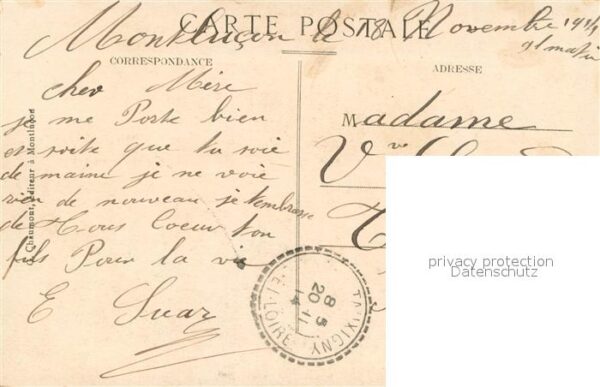 CARTE POSTALE
Montluçon le 18 Novembre 1914
CORRESPONDANCE
ADRESSE
cher Mère
je me Porte bien
et soite que tu soie
de maime je ne voie
rien de nouveau je tembrasse
de Tous Coeur ton
fils Pour la vie
E Suar
Madame
Vve
Chaumour, éditeur à Montluçon
TAUXIGNY
ET-LOIRE
8 5
20 - 11
14
privacy protection
Datenschutz